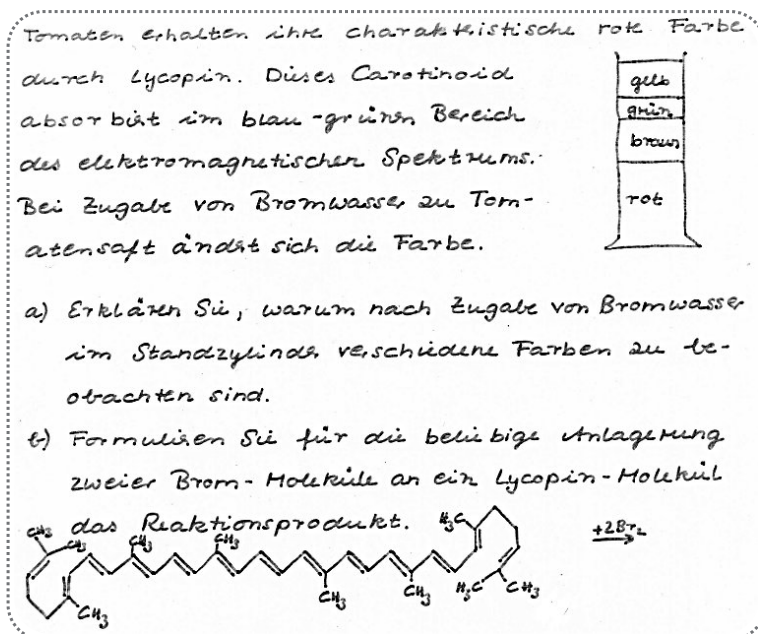 Tomaten erhalten ihre charakteristische rote Farbe
durch Lycopin. Dieses Carotinoid
absorbiert im blau-grünen Bereich
des elektromagnetischen Spektrums.
Bei Zugabe von Bromwasser zu Tom-
atensaft ändert sich die Farbe.
gelb
grün
braun
rot
a) Erklären Sie, warum nach Zugabe von Bromwasser
im Standzylinder verschiedene Farben zu be-
obachten sind.
b) Formulieren Sie für die beliebige Anlagerung
zweier Brom-Moleküle an ein Lycopin-Molekül
das Reaktionsprodukt.
CH3 CH3 CH3 CH3 H3C +2Br2
CH3 CH3 CH3 H3C CH3